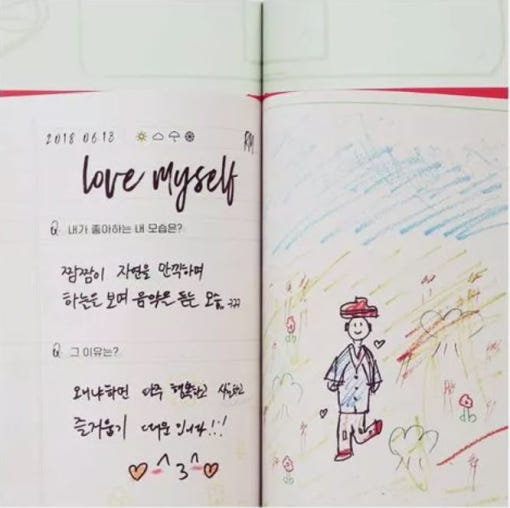 2018 06 13 RM
love myself
Q. 내가 좋아하는 내 모습은?
짬짬이 자연을 만끽하며
하늘을 보며 음악을 듣는 모습 ㅋㅋㅋ
Q. 그 이유는?
왜냐하면 아주 행복하고
즐겁기 때문입니다!!!
^3^